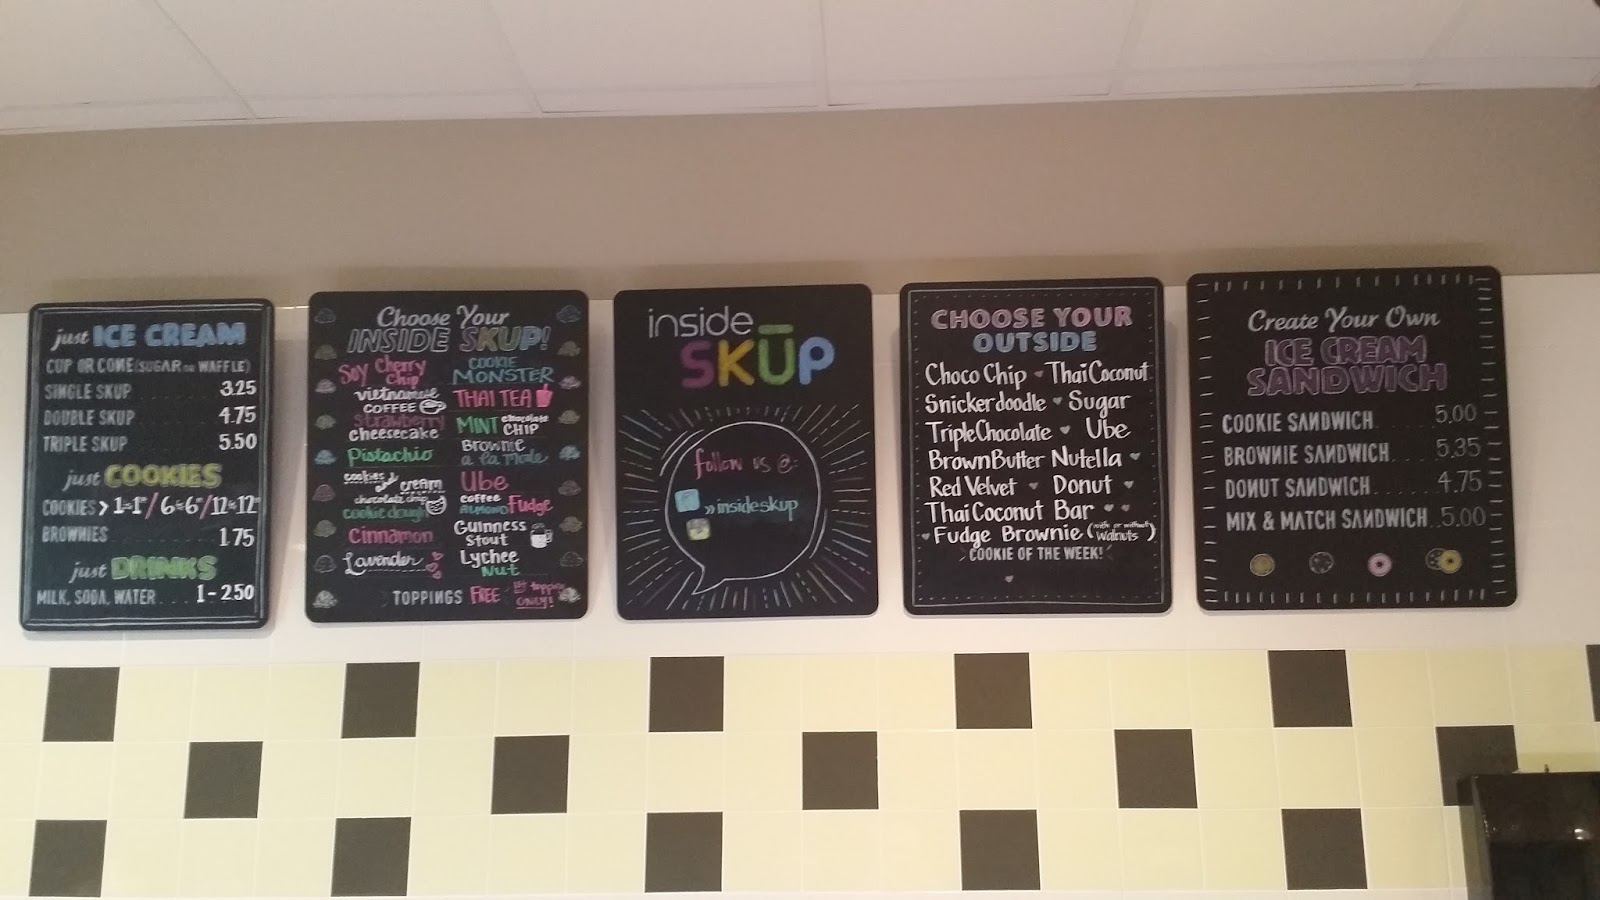 just ICE CREAM
CUP OR CONE (SUGAR OR WAFFLE)
SINGLE SKUP 3.25
DOUBLE SKUP 4.75
TRIPLE SKUP 5.50
just COOKIES
COOKIES > 1=1 / 6=6 / 12=12
BROWNIES 1.75
just DRINKS
MILK, SODA, WATER .... 1-2.50
Choose Your
INSIDE SKUP!
Soy Cherry Chip
Vietnamese COFFEE
Strawberry cheesecake
Pistachio
cookies cream
chocolate chip cookie dough
Cinnamon
Lavender
COOKIE MONSTER
THAI TEA
MINT chocolate CHIP
Brownie a la Mode
Ube
coffee ALMOND Fudge
Guinness Stout
Lychee Nut
TOPPINGS FREE 1st topping ONLY!
inside
SKŪP
follow us @:
»insideskup
CHOOSE YOUR
OUTSIDE
Choco Chip ♥ Thai Coconut
Snickerdoodle ♥ Sugar
Triple Chocolate ♥ Ube
Brown Butter Nutella ♥
Red Velvet ♥ Donut ♥
Thai Coconut Bar ♥ ♥
♥ Fudge Brownie (with or without Walnuts)
COOKIE OF THE WEEK!
♥
Create Your Own
ICE CREAM
SANDWICH
COOKIE SANDWICH 5.00
BROWNIE SANDWICH 5.35
DONUT SANDWICH 4.75
MIX & MATCH SANDWICH 5.00